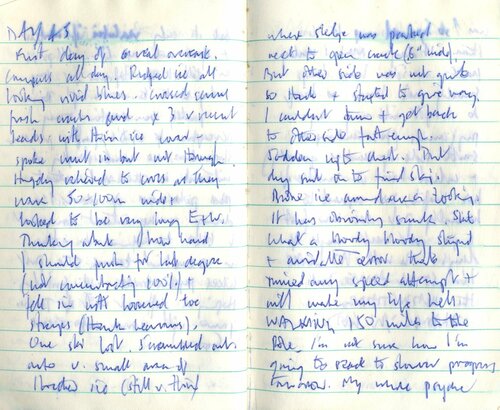 DAY 43
First day of real overcast.
Compass all day. Ridged ice all
looking vivid blues. Crossed several
fresh cracks and x 3 v recent
leads with thin ice cover –
spoke went in but not through.
Hugely relieved to cross as they
were 50-100m wide +
looked to be very long E+W.
Thinking about how hard
I should push for last degree
(not concentrating 100%) +
fell in with loosened toe
straps (thank heavens).
One ski lost. Scrambled out
onto v. small area of
thicker ice (still v. thin)
where sledge was parked
next to open crack (6" wide).
But other side was not quite
so thick + started to give way.
I couldn't turn + get back
to other side fast enough.
Sudden up to chest. Put
dry suit on to find ski.
Broke ice around area looking.
It has obviously sunk. Shit
what a bloody bloody stupid
+ avoidable error that
ruined any speed attempt +
will make my life hell
WALKING 150 miles to the
Pole. I'm not sure how I'm
going to react to slower progress
tomorrow. My whole psyche